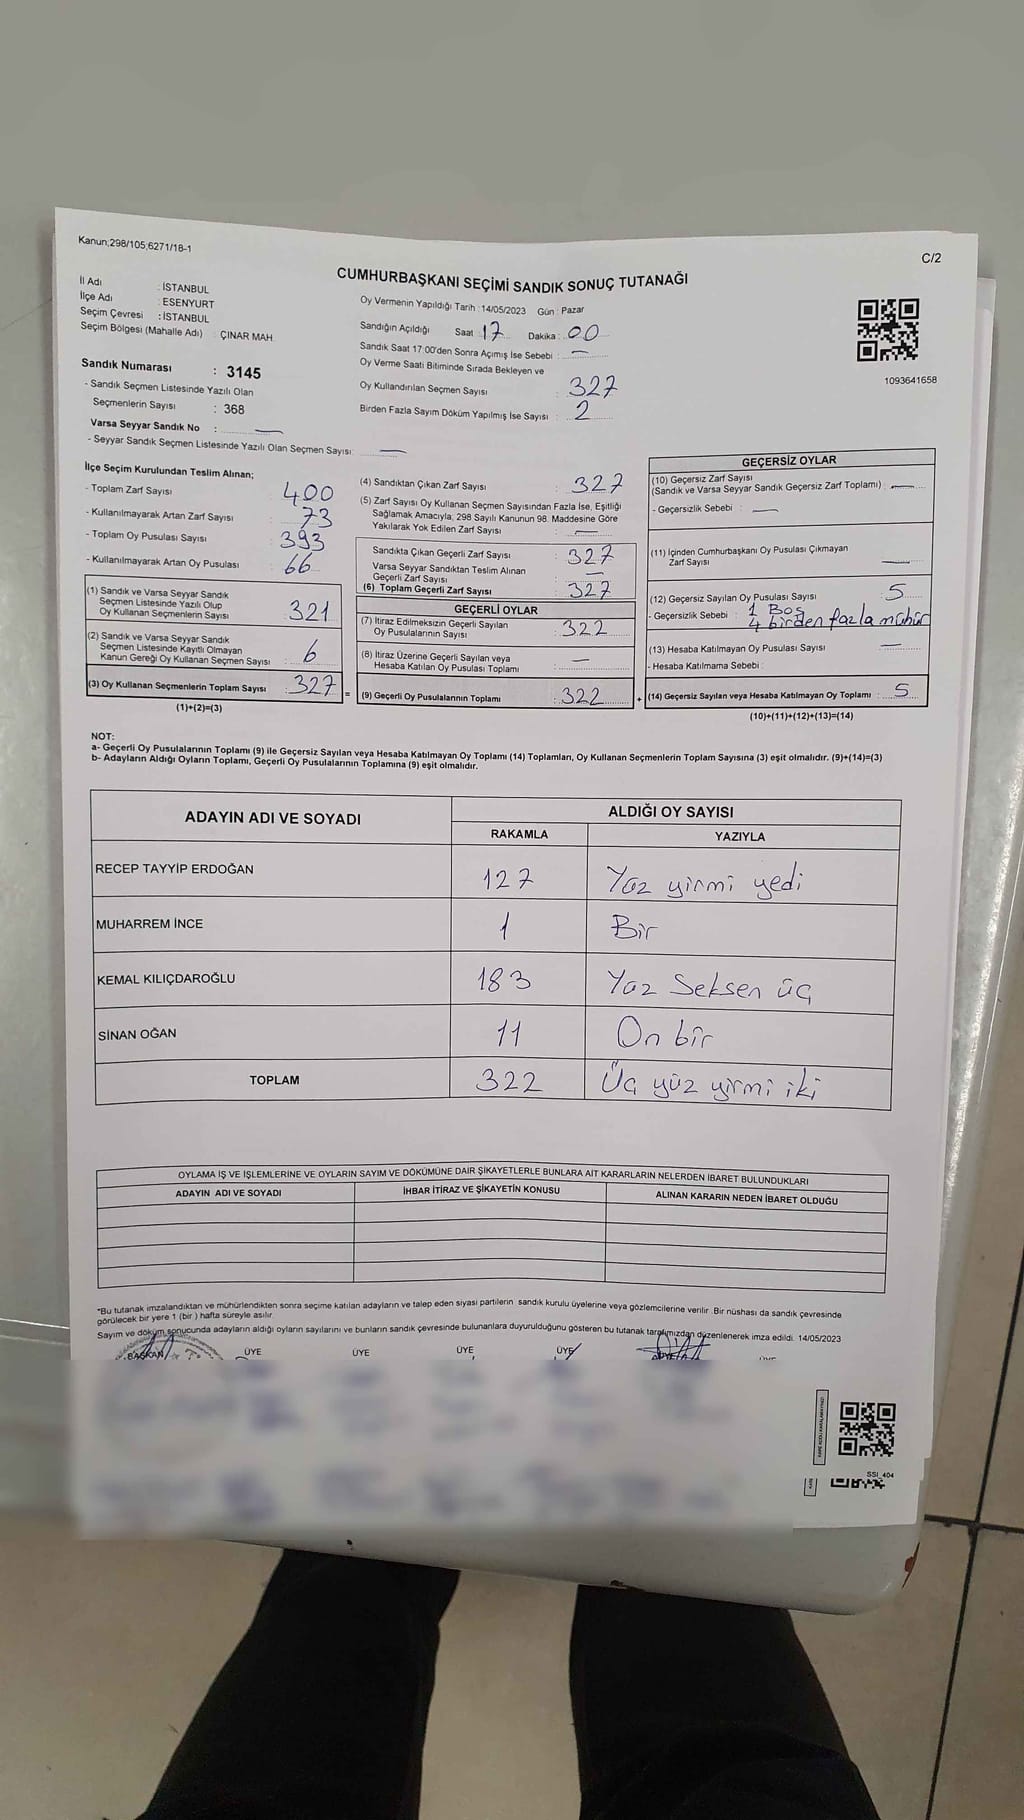 Kanun;298/105;6271/18-1
C/2
CUMHURBAŞKANI SEÇİMİ SANDIK SONUÇ TUTANAĞI
İl Adı : İSTANBUL
İlçe Adı : ESENYURT
Seçim Çevresi : İSTANBUL
Seçim Bölgesi (Mahalle Adı) : ÇINAR MAH
Sandık Numarası : 3145
- Sandık Seçmen Listesinde Yazılı Olan
Seçmenlerin Sayısı : 368
Varsa Seyyar Sandık No : —
- Seyyar Sandık Seçmen Listesinde Yazılı Olan Seçmen Sayısı: —
Oy Vermenin Yapıldığı Tarih : 14/05/2023 Gün : Pazar
Sandığın Açıldığı Saat 17 Dakika : 00
Sandık Saat 17:00'den Sonra Açımış İse Sebebi : —
Oy Verme Saati Bitiminde Sırada Bekleyen ve
Oy Kullandırılan Seçmen Sayısı : 327
Birden Fazla Sayım Döküm Yapılmış İse Sayısı : 2
1093641658
İlçe Seçim Kurulundan Teslim Alınan;
- Toplam Zarf Sayısı : 400
- Kullanılmayarak Artan Zarf Sayısı : 73
- Toplam Oy Pusulası Sayısı : 393
- Kullanılmayarak Artan Oy Pusulası : 66
(1) Sandık ve Varsa Seyyar Sandık
Seçmen Listesinde Yazılı Olup
Oy Kullanan Seçmenlerin Sayısı : 321
(2) Sandık ve Varsa Seyyar Sandık
Seçmen Listesinde Kayıtlı Olmayan
Kanun Gereği Oy Kullanan Seçmen Sayısı : 6
(3) Oy Kullanan Seçmenlerin Toplam Sayısı : 327 =
(1)+(2)=(3)
(4) Sandıktan Çıkan Zarf Sayısı : 327
(5) Zarf Sayısı Oy Kullanan Seçmen Sayısından Fazla İse, Eşitliği
Sağlamak Amacıyla, 298 Sayılı Kanunun 98. Maddesine Göre
Yakılarak Yok Edilen Zarf Sayısı : —
Sandıkta Çıkan Geçerli Zarf Sayısı : 327
Varsa Seyyar Sandıktan Teslim Alınan
Geçerli Zarf Sayısı : —
(6) Toplam Geçerli Zarf Sayısı : 327
GEÇERLİ OYLAR
(7) İtiraz Edilmeksizin Geçerli Sayılan
Oy Pusulalarının Sayısı : 322
(8) İtiraz Üzerine Geçerli Sayılan veya
Hesaba Katılan Oy Pusulası Toplamı : —
(9) Geçerli Oy Pusulalarının Toplamı : 322 +
GEÇERSİZ OYLAR
(10) Geçersiz Zarf Sayısı
(Sandık ve Varsa Seyyar Sandık Geçersiz Zarf Toplamı) : —
- Geçersizlik Sebebi : —
(11) İçinden Cumhurbaşkanı Oy Pusulası Çıkmayan
Zarf Sayısı : —
(12) Geçersiz Sayılan Oy Pusulası Sayısı : 5
- Geçersizlik Sebebi : 1 Boş
4 birden fazla mühür
(13) Hesaba Katılmayan Oy Pusulası Sayısı : —
- Hesaba Katılmama Sebebi :
(14) Geçersiz Sayılan veya Hesaba Katılmayan Oy Toplamı : 5
(10)+(11)+(12)+(13)=(14)
NOT:
a- Geçerli Oy Pusulalarının Toplamı (9) ile Geçersiz Sayılan veya Hesaba Katılmayan Oy Toplamı (14) Toplamları, Oy Kullanan Seçmenlerin Toplam Sayısına (3) eşit olmalıdır. (9)+(14)=(3)
b- Adayların Aldığı Oyların Toplamı, Geçerli Oy Pusulalarının Toplamına (9) eşit olmalıdır.
ADAYIN ADI VE SOYADI
ALDIĞI OY SAYISI
RAKAMLA YAZIYLA
RECEP TAYYİP ERDOĞAN 127 Yüz yirmi yedi
MUHARREM İNCE 1 Bir
KEMAL KILIÇDAROĞLU 183 Yüz Seksen üç
SİNAN OĞAN 11 On bir
TOPLAM 322 Üç yüz yirmi iki
OYLAMA İŞ VE İŞLEMLERİNE VE OYLARIN SAYIM VE DÖKÜMÜNE DAİR ŞİKAYETLERLE BUNLARA AİT KARARLARIN NELERDEN İBARET BULUNDUKLARI
ADAYIN ADI VE SOYADI İHBAR İTİRAZ VE ŞİKAYETİN KONUSU ALINAN KARARIN NEDEN İBARET OLDUĞU
*Bu tutanak imzalandıktan ve mühürlendikten sonra seçime katılan adayların ve talep eden siyasi partilerin sandık kurulu üyelerine veya gözlemcilerine verilir. Bir nüshası da sandık çevresinde
görülecek bir yere 1 (bir) hafta süreyle asılır.
Sayım ve döküm sonucunda adayların aldığı oyların sayılarını ve bunların sandık çevresinde bulunanlara duyurulduğunu gösteren bu tutanak tarafımızdan düzenlenerek imza edildi. 14/05/2023
BAŞKAN ÜYE ÜYE ÜYE ÜYE ÜYE ÜYE
SSI_404